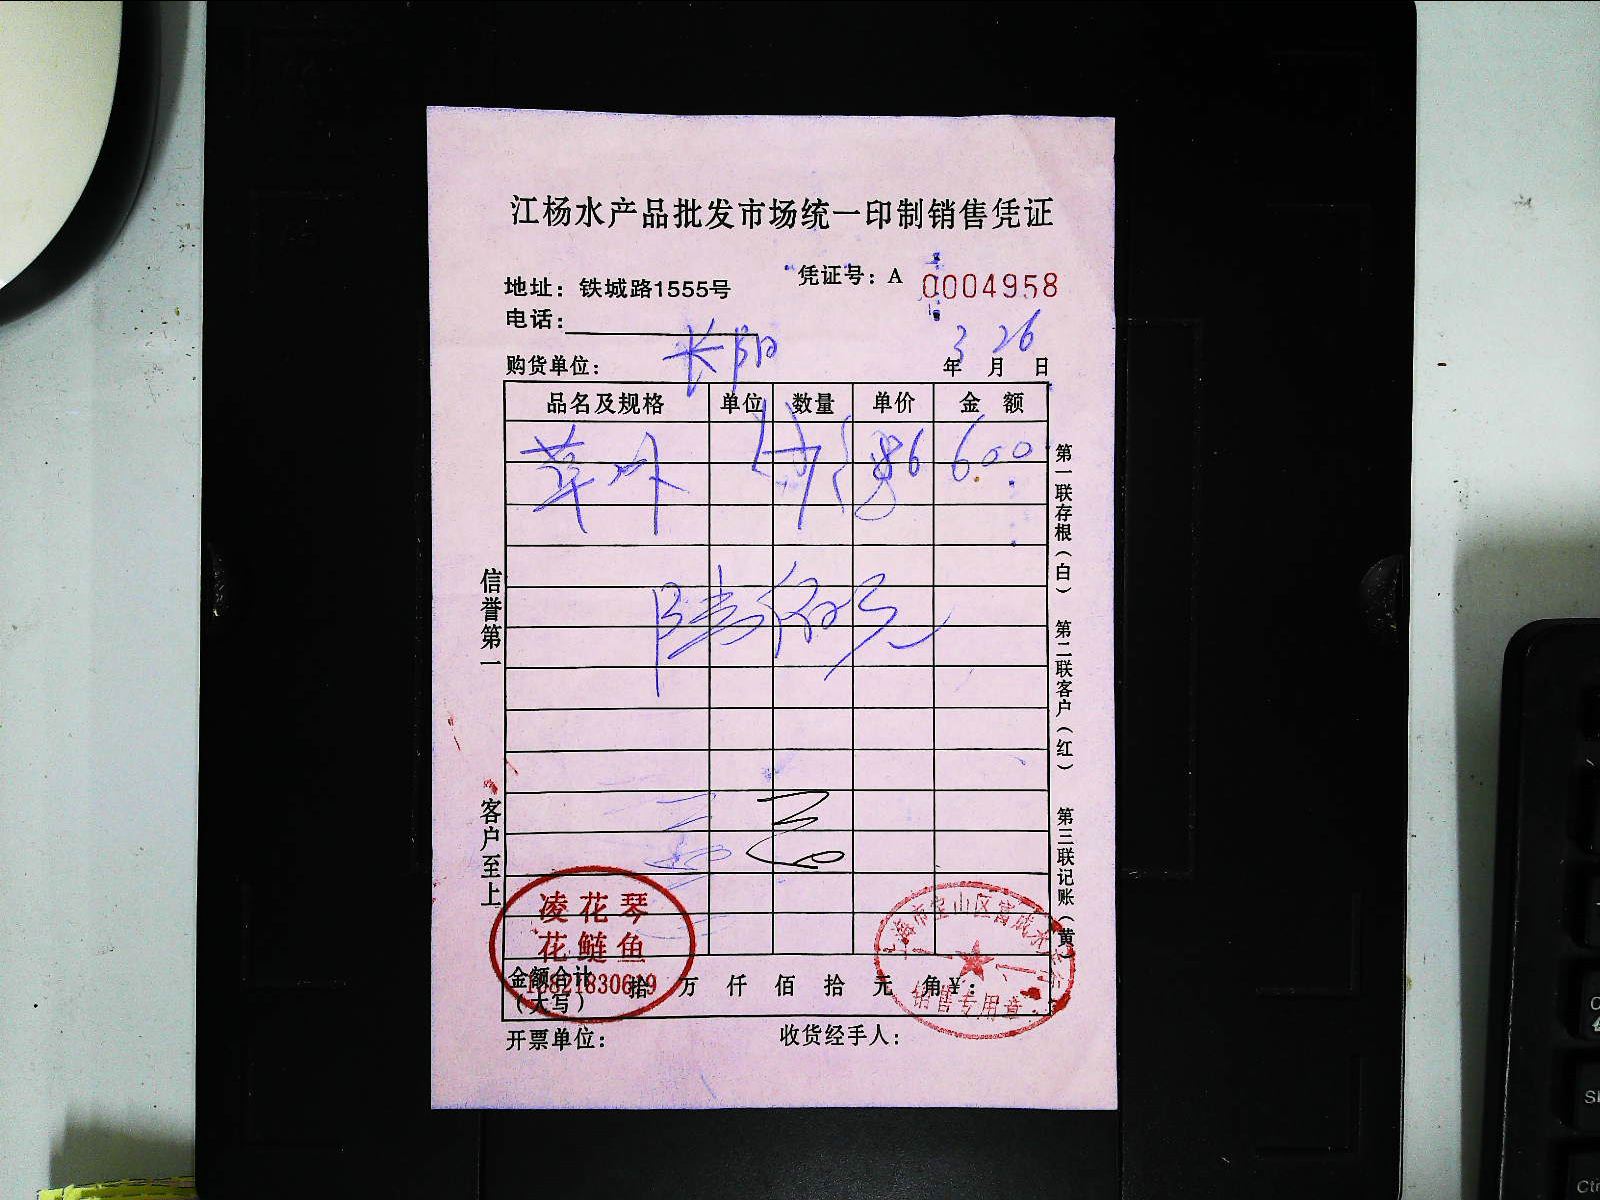 江杨水产品批发市场统一印制销售凭证
凭证号：A 0004958
地址：铁城路1555号
电话：
购货单位：长阳
3 26
年 月 日
品名及规格 单位 数量 单价 金 额
草 6 600
陆佰元
信誉第一
客户至上
第一联存根（白）
第二联客户（红）
第三联记账（黄）
凌花琴
花鲢鱼
金额合计
（大写）
拾 万 仟 佰 拾 元 角 ¥：
上海市宝山区富成水
销售专用章
开票单位：
收货经手人：